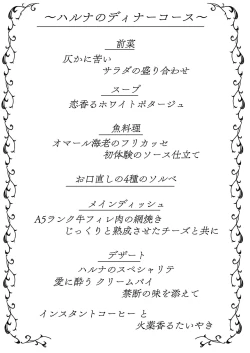 ～ハルナのディナーコース～
前菜
仄かに苦い
サラダの盛り合わせ
スープ
恋香るホワイトポタージュ
魚料理
オマール海老のフリカッセ
初体験のソース仕立て
お口直しの4種のソルベ
メインディッシュ
A5ランク牛フィレ肉の網焼き
じっくりと熟成させたチーズと共に
デザート
ハルナのスペシャリテ
愛に酔う クリームパイ
禁断の味を添えて
インスタントコーヒー と
火薬香るたいやき